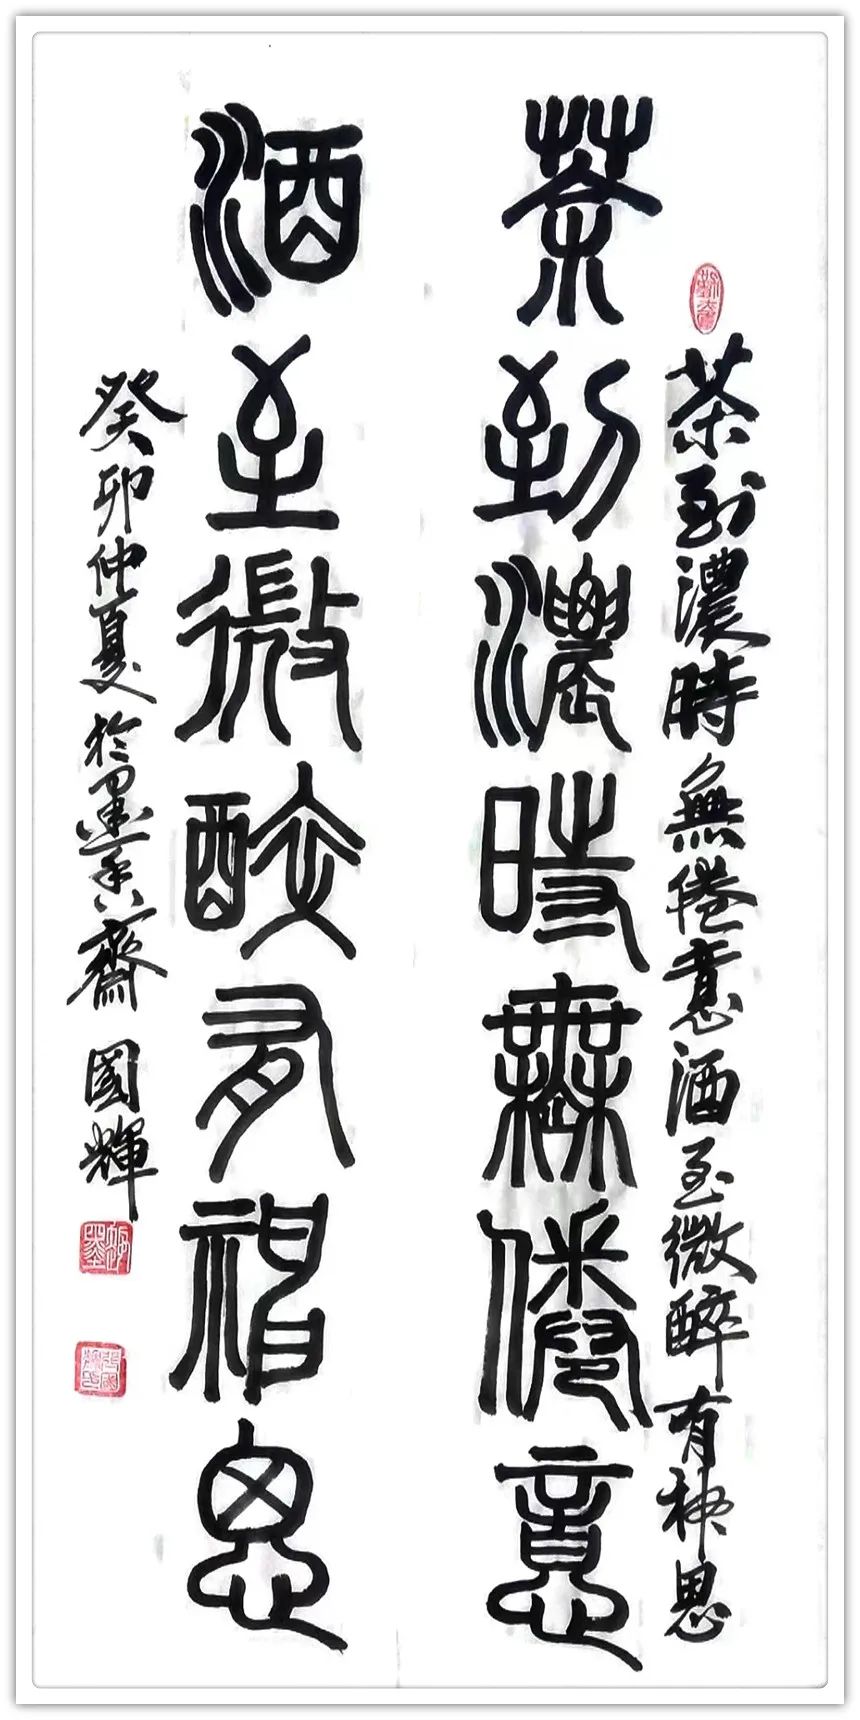 茶到濃時無倦意酒至微醉有神思
茶到濃時無倦意
酒至微醉有神思
癸卯仲夏於墨香齋 國輝